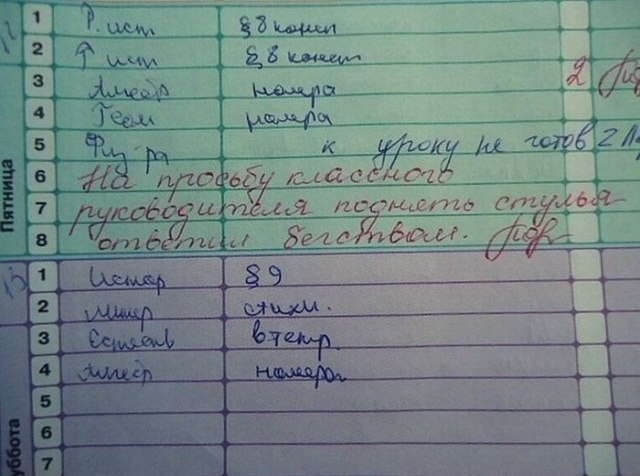 1 Р. ист § 8 консп
2 Р ист § 8 консп
3 Алгебр номера 2
4 Геом номера
5 Физ ра к уроку не готов 2
Пятница
6 На просьбу классного
7 руководителя поднять стулья
8 ответил бегством.
1 Истор § 9
2 Литер стихи.
3 Естеств в тетр.
4 Алгебр номера
5
6
7
ббота